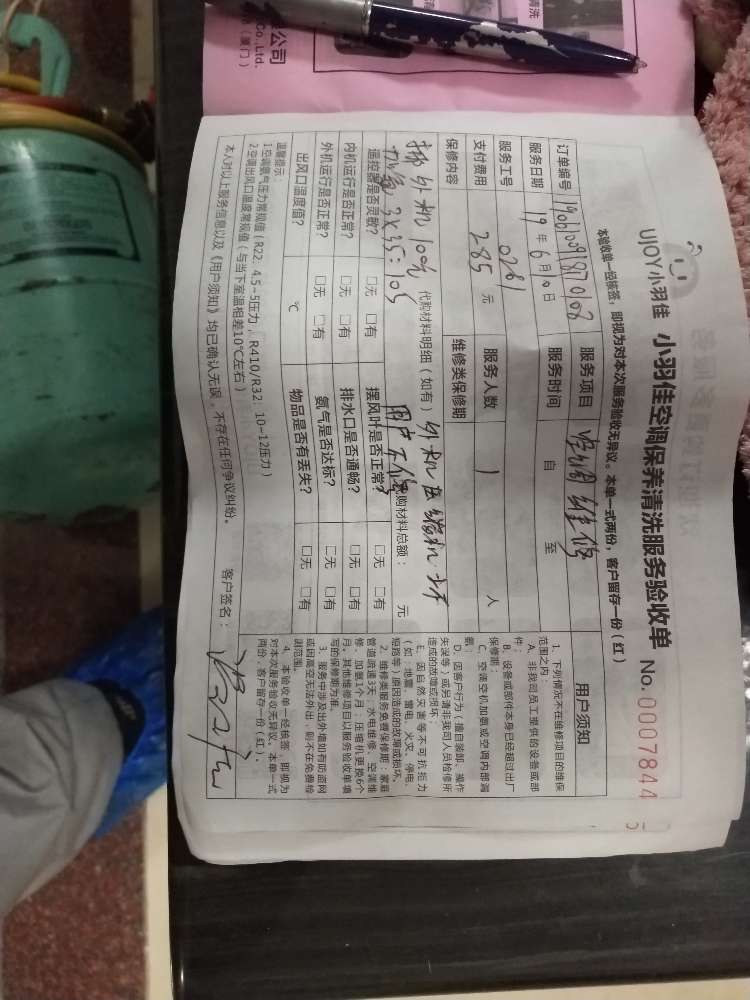 公司
Co.,Ltd.
（厦门）
清洗
UJOY小羽佳 小羽佳空调保养清洗服务验收单 No. 0007844
本验收单一经核签，即视为对本次服务验收无异议。本单一式两份，客户留存一份（红）
订单编号 服务项目 空调维修
服务日期 19年6月10日 服务时间 自 至
服务工号 0281 服务人数 1 人
支付费用 285 元 维修类保修期
保修内容
拆外机100%, 代购材料明细（如有）外机压缩机
加氨 3×35=105 用户不修 代购材料总额： 元
遥控器是否灵敏？ □无 □有 摆风叶是否正常？ □无 □有
内机运行是否正常？ □无 □有 排水口是否通畅？ □无 □有
外机运行是否正常？ □无 □有 氨气是否达标？ □无 □有
出风口温度值？ ℃ 物品是否有丢失？ □无 □有
温馨提示：
1.空调氨气压力常规值（R22：4.5~5压力，R410/R32：10~12压力）
2.空调出风口温度常规值（与当下室温相差10℃左右）
本人对以上服务信息以及《用户须知》均已确认无误，不存在任何争议纠纷。 客户签名：
用户须知
1、下列情况不在维修项目的维保
范围之内：
A、非我司员工提供的设备或部
件；
B、设备或部件本身已经超过出厂
保修期；
C、空调空机加氨或空调内部漏
氨；
D、因客户行为（擅自装卸、操作
失误等）或另请非我司人员检修所
造成的故障或损坏；
E、因自然灾害等不可抗拒力
（如：地震、雷电、火灾、停电、
短路等）原因造成的故障或损坏。
2、维修类服务免费保修期：家庭
管道疏通3天；水电维修、空调维
修、加氨1个月；压缩机更换6个
月。其他维修项目以服务验收单填
写的保修期为准。
3、服务中涉及出外墙如有防盗网
或因高空无法外出，则不在免费检
测范围。
4、本验收单一经核签，即视为
对本次服务验收无异议。本单一式
两份，客户留存一份（红）。